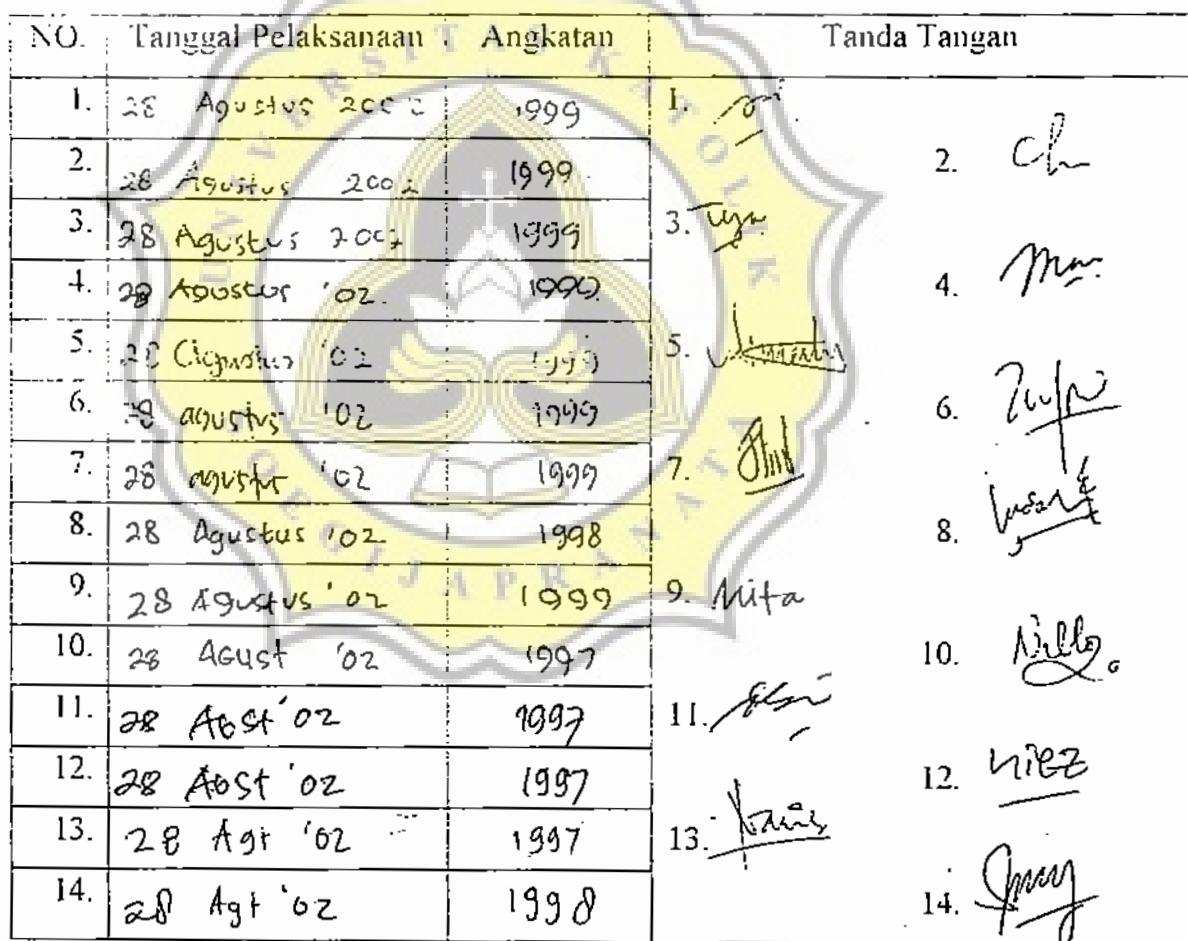 NO. Tanggal Pelaksanaan Angkatan Tanda Tangan
1. 28 Agustus 2002 1999 1.
2. 28 Agustus 2002 1999 2.
3. 28 Agustus 2002 1999 3.
4. 28 Agustus '02 1999 4.
5. 28 Agustus '02 1999 5.
6. 28 agustus '02 1999 6.
7. 28 agustus '02 1999 7.
8. 28 Agustus '02 1998 8.
9. 28 Agustus '02 1999 9. Mita
10. 28 Agust '02 1997 10.
11. 28 Agst '02 1997 11.
12. 28 Agst '02 1997 12. niez
13. 28 Agt '02 1997 13.
14. 28 Agt '02 1998 14.
UNIVERSITAS KATOLIK
SOEGIJAPRANATA